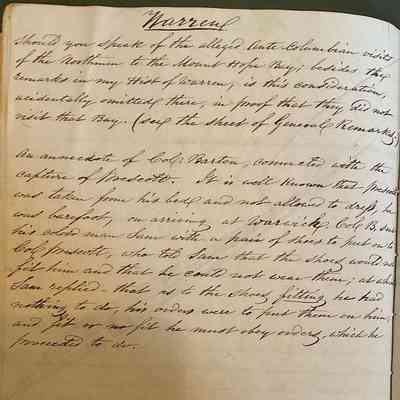 Warren
Should you speak of the alleged Ante Columbian visits
of the Northmen to the Mount Hope Bay; besides the
remarks in my Hist of Warren, is this consideration,
acidentally omitted there, in proof that they did not
visit that Bay. (see the sheet of General Remarks;)
An annecdote of Col: Barton, connected with the
capture of Prescott. It is well known that Prescott
was taken from his bed and not allowed to dress, he
was barefoot, on arriving at Warwick. Col B. sent
his colored man Sam with a pair of shoes to put on to
Col Prescott, who told Sam that the shoes would not
fit him and that he could not wear them; at which
Sam replied - that as to the shoes fitting he had
nothing to do, his orders were to put them on him,
and fit or no fit he must obey orders, which he
proceeded to do.